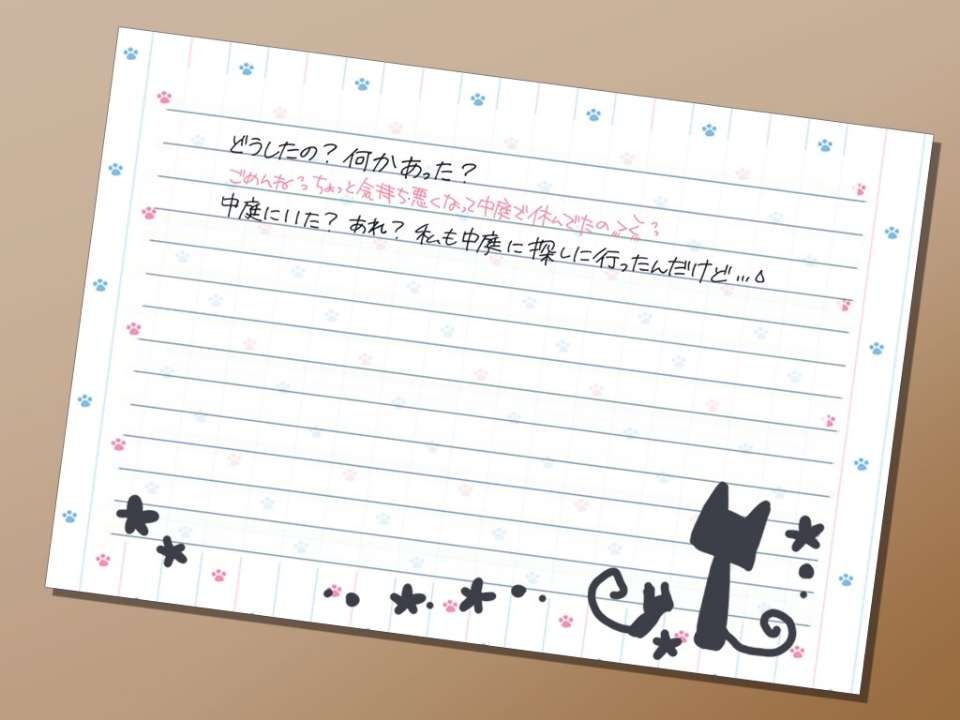 どうしたの？何かあった？
ごめんねっっちょっと気持ち悪くなって中庭で休んでたの
中庭にいた？あれ？私も中庭に探しに行ったんだけど…